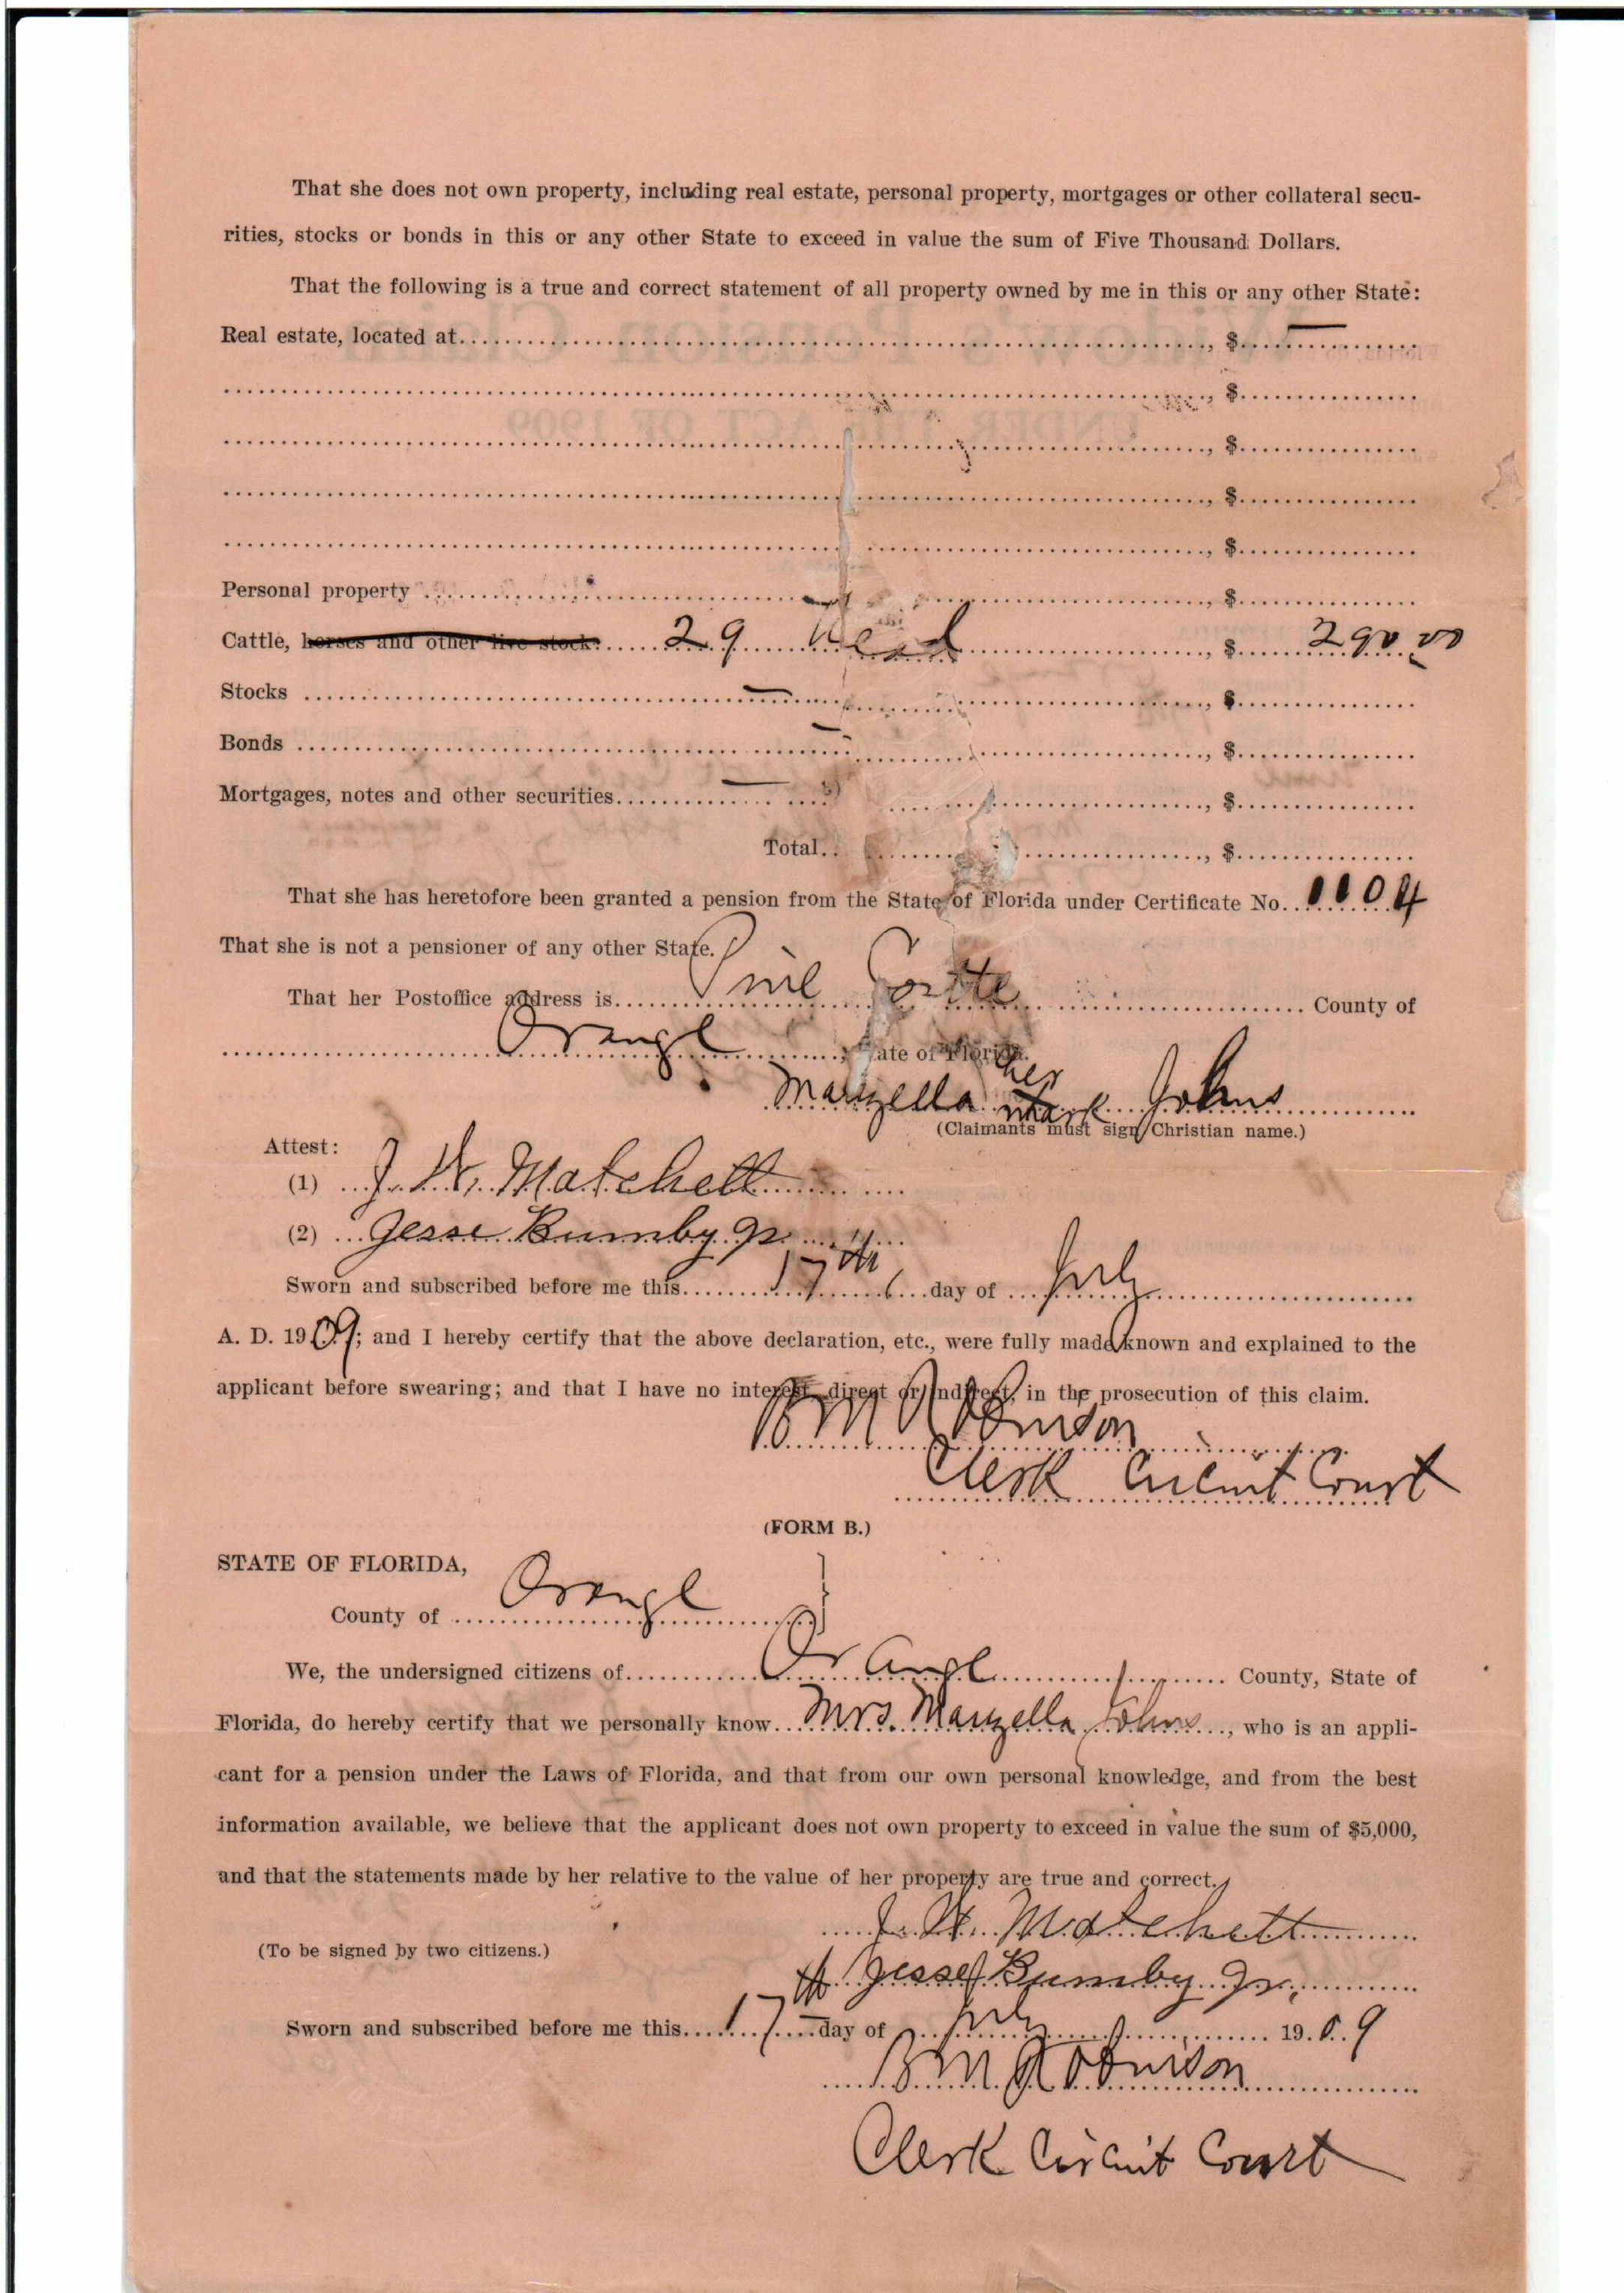 That she does not own property, including real estate, personal property, mortgages or other collateral secu-
rities, stocks or bonds in this or any other State to exceed in value the sum of Five Thousand Dollars.
That the following is a true and correct statement of all property owned by me in this or any other State:
Real estate, located at........, $ —
........, $........
........, $........
........, $........
........, $........
Personal property ........ — ........, $........
Cattle, horses and other live stock: 29 Head, $ 290.00
Stocks ........ — ........, $........
Bonds ........ — ........, $........
Mortgages, notes and other securities........ — ........, $........
Total........, $........
That she has heretofore been granted a pension from the State of Florida under Certificate No. 1104
That she is not a pensioner of any other State.
That her Postoffice address is Pine Castle County of
Orange, State of Florida.
her
Marzella mark Johns
(Claimants must sign Christian name.)
Attest:
(1) J. W. Matchett
(2) Jesse Bumby Jr.
Sworn and subscribed before me this 17th day of July
A. D. 1909; and I hereby certify that the above declaration, etc., were fully made known and explained to the
applicant before swearing; and that I have no interest, direct or indirect, in the prosecution of this claim.
B M Robinson
Clerk Circuit Court
(FORM B.)
STATE OF FLORIDA,
County of Orange
We, the undersigned citizens of Orange County, State of
Florida, do hereby certify that we personally know Mrs. Marzella Johns, who is an appli-
cant for a pension under the Laws of Florida, and that from our own personal knowledge, and from the best
information available, we believe that the applicant does not own property to exceed in value the sum of $5,000,
and that the statements made by her relative to the value of her property are true and correct.
J. W. Matchett
(To be signed by two citizens.)
Jesse Bumby Jr.
Sworn and subscribed before me this 17th day of July 1909
B M Robinson
Clerk Circuit Court